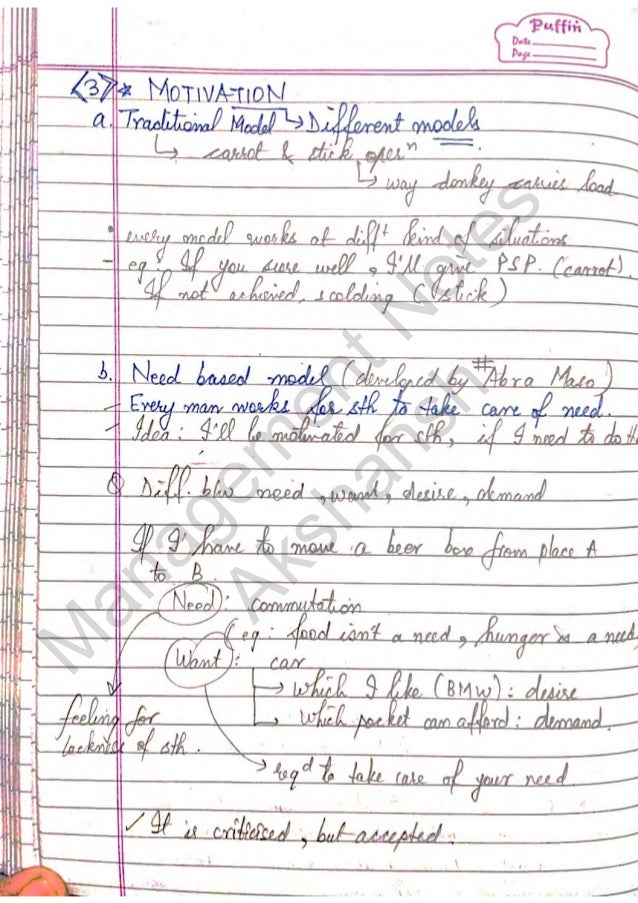 Puffin
Date
Page
<3> * MOTIVATION
a. Traditional Model → Different models
↳ carrot & stick opesⁿ
↳ way donkey carries load
• every model works at diffᵗ kind of situations
- eg: If you score well, I'll give PSP. (carrot)
If not achieved, scolding (stick)
b. Need based model (developed by #Abra Maso)
- Every man works for sth to take care of need.
- Idea: I'll be motivated for sth, if I need to do th
Q Diff. b/w need, want, desire, demand
If I have to move a beer box from place A
to B.
Need: commutation
(eg: food isn't a need, hunger is a need,
Want: car
→ which I like (BMW): desire
→ which pocket can afford: demand.
feeling for
lackness of sth.
→ reqᵈ to take care of your need.
✓ It is criticised, but accepted.
Management Notes
Akshansh